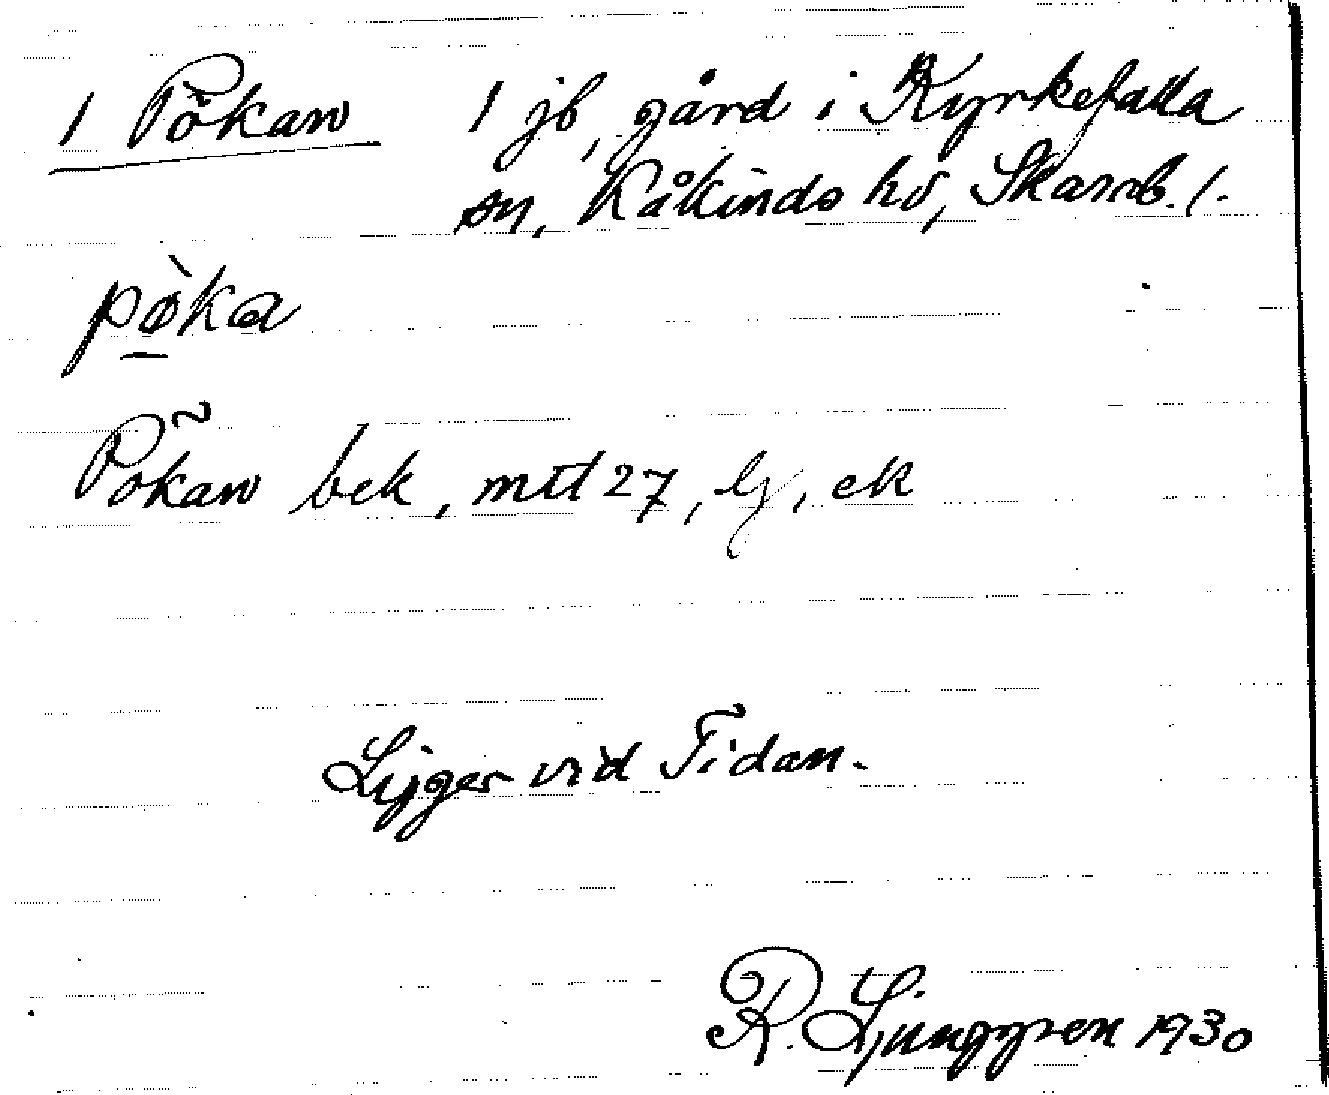 1 Pökan 1 jb, gård i Kyrkefalla
sn, Kåkinds hd, Skarab. l.
pø̀ka
Pökan bek, mtl 27, lj, ek
Ligger vid Tidan.
R. Ljunggren 1930